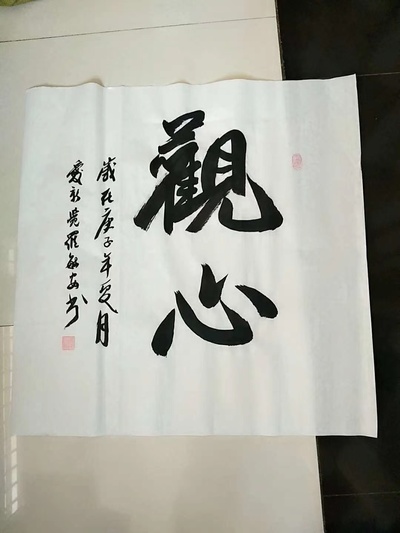 觀心
歲在庚子年夏月
愛新覺羅 书